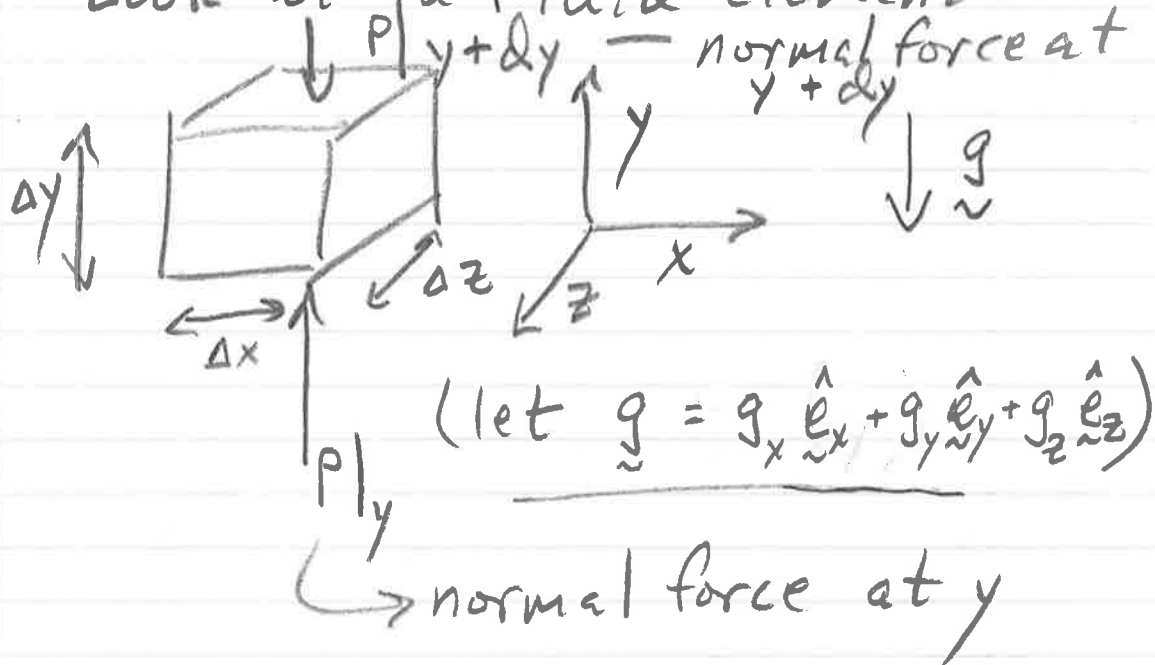 Look at a fluid element
P|y+dy — normal force at
y + dy
Δy
y
g
x
Δz
z
Δx
(let g = gₓ êₓ + g_y ê_y + g_z ê_z)
P|y
→ normal force at y